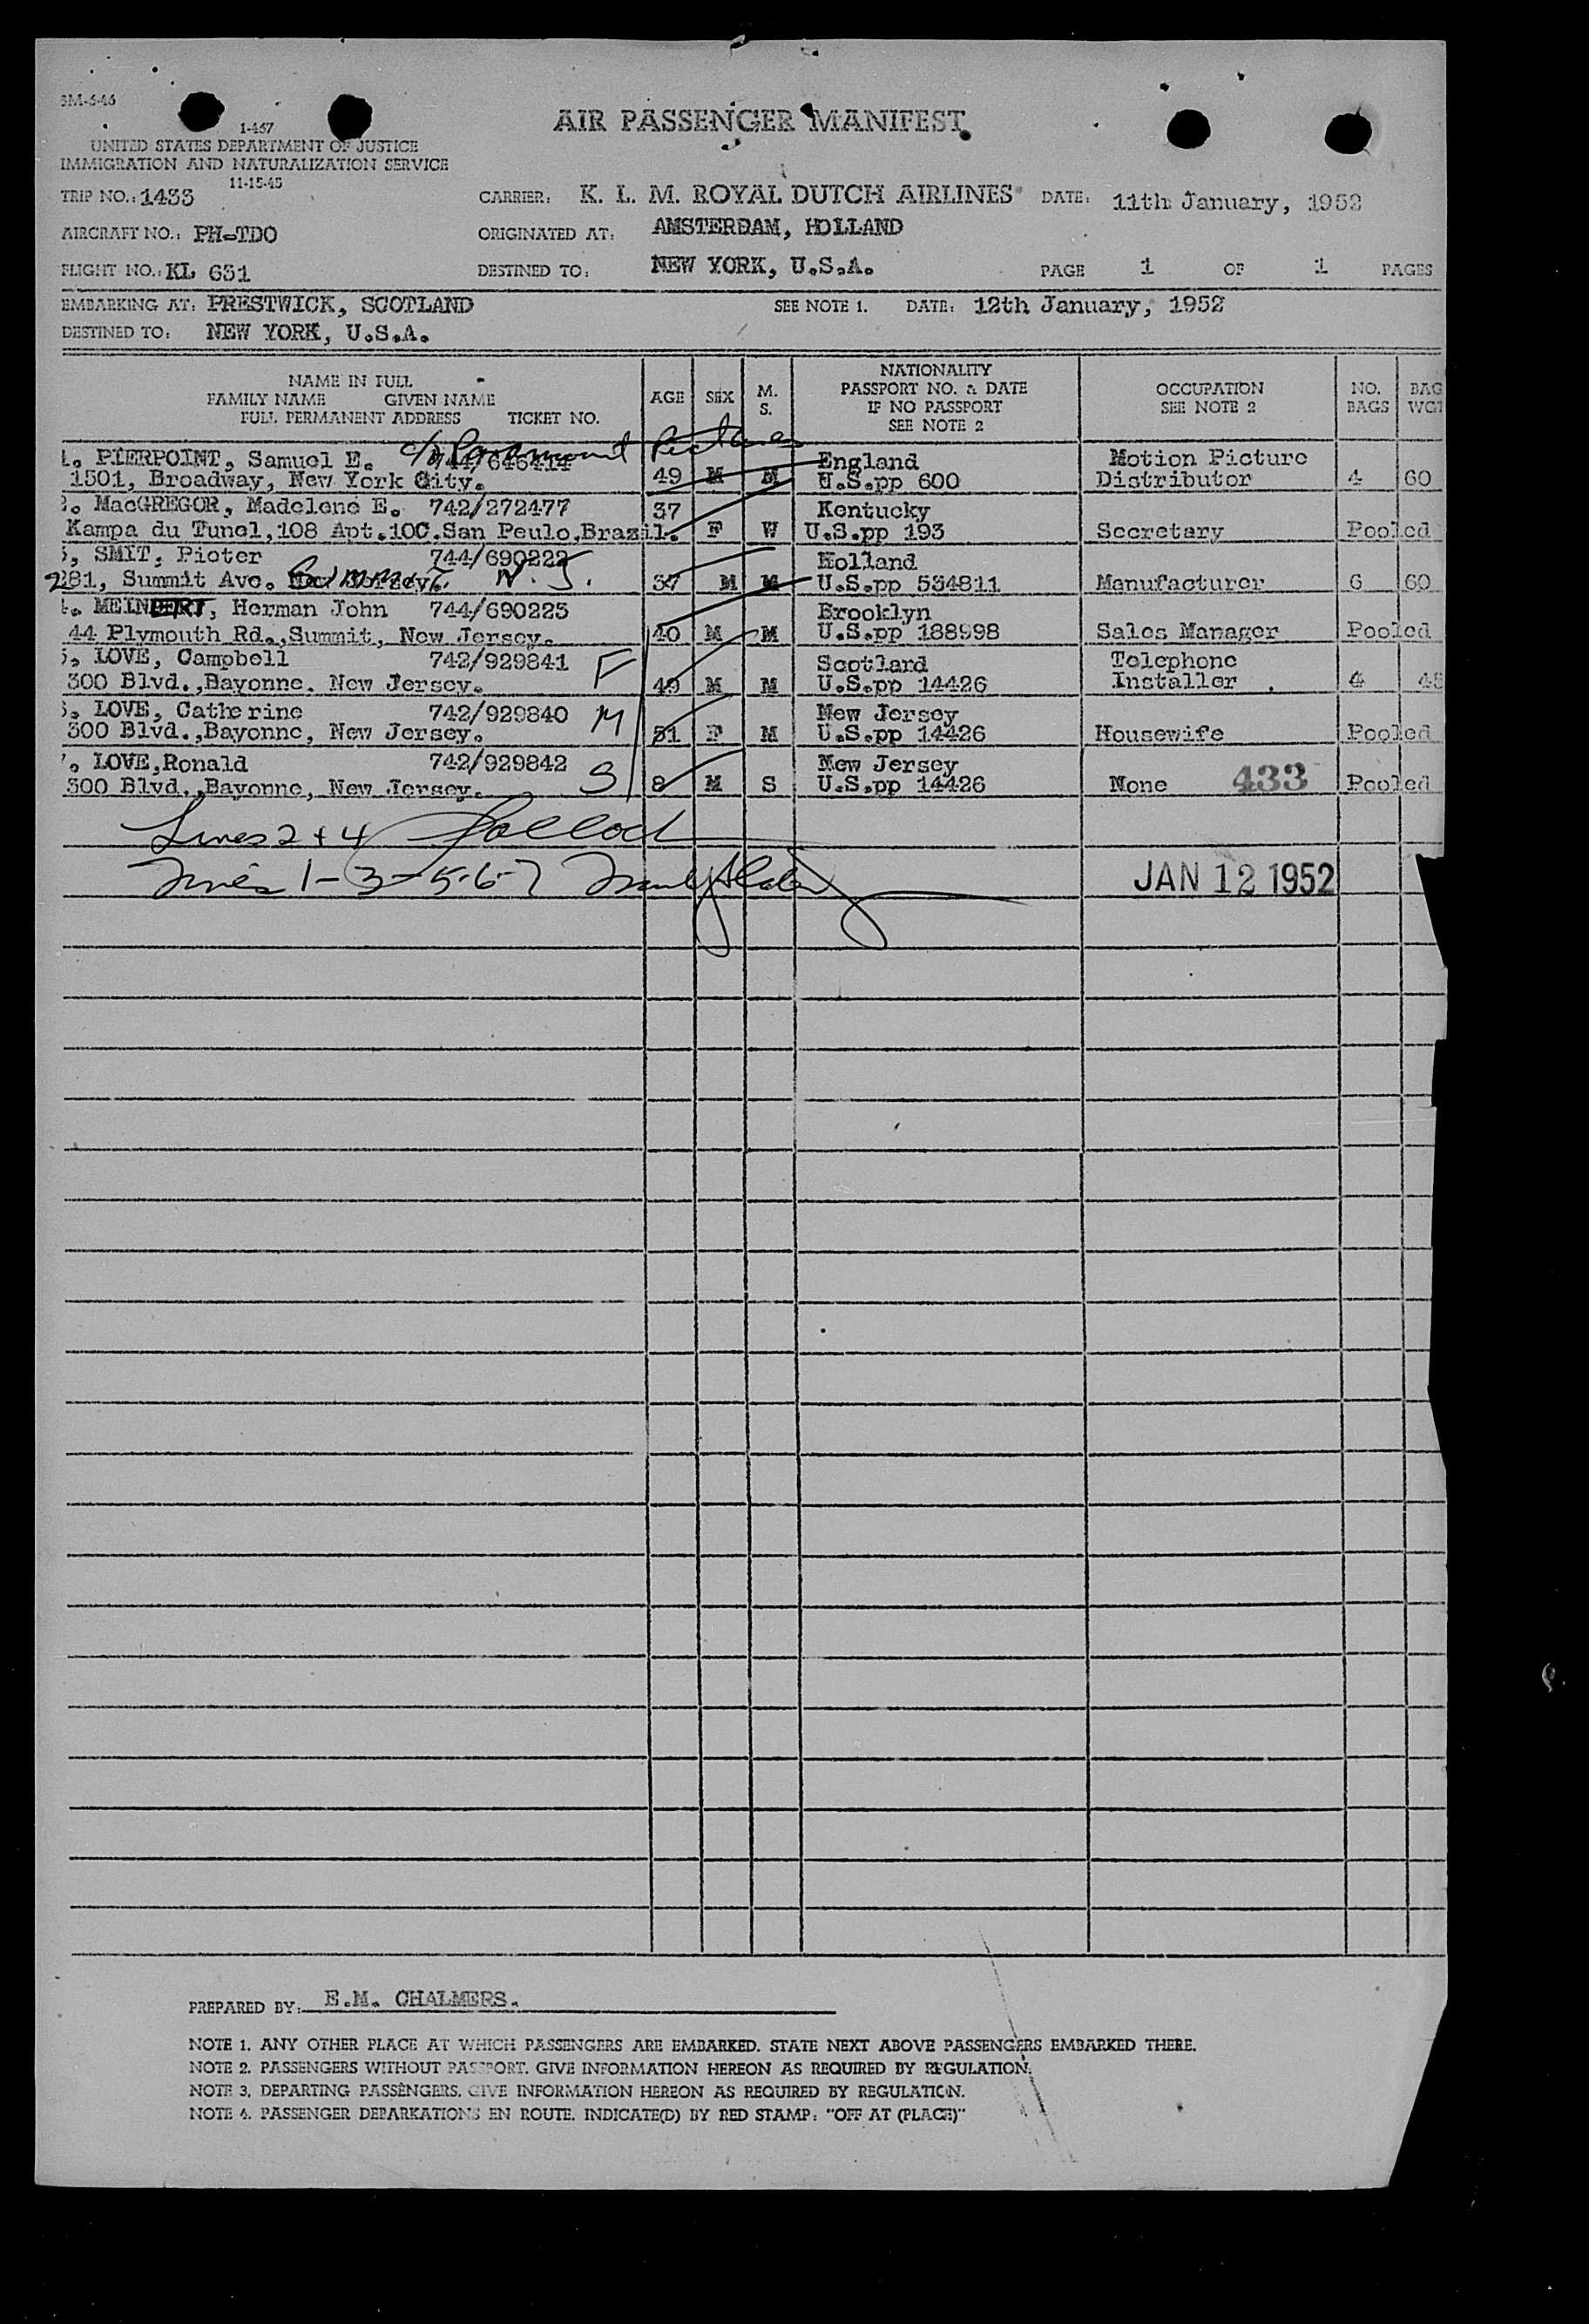 SM-6-46
1-467
UNITED STATES DEPARTMENT OF JUSTICE
IMMIGRATION AND NATURALIZATION SERVICE
11-15-45
AIR PASSENGER MANIFEST
TRIP NO.: 1433 CARRIER: K. L. M. ROYAL DUTCH AIRLINES DATE: 11th January, 1952
AIRCRAFT NO.: PH-TDO ORIGINATED AT: AMSTERDAM, HOLLAND
FLIGHT NO.: KL 631 DESTINED TO: NEW YORK, U.S.A. PAGE 1 OF 1 PAGES
EMBARKING AT: PRESTWICK, SCOTLAND SEE NOTE 1. DATE: 12th January, 1952
DESTINED TO: NEW YORK, U.S.A.
NAME IN FULL
FAMILY NAME GIVEN NAME
FULL PERMANENT ADDRESS TICKET NO.
AGE SEX M. S.
NATIONALITY
PASSPORT NO. & DATE
IF NO PASSPORT
SEE NOTE 2
OCCUPATION
SEE NOTE 2
NO. BAGS
BAG WGT
c/o Paramount Pictures
1. PIERPOINT, Samuel E. 744/646414 England Motion Picture
1501, Broadway, New York City. 49 M M U.S.pp 600 Distributor 4 60
2. MacGREGOR, Madelene E. 742/272477 37 Kentucky
Kampa du Tunel,108 Apt.10C.San Peulo.Brazil. F W U.S.pp 193 Secretary Pooled
3, SMIT, Pieter 744/690222 Holland
281, Summit Ave. Summit N.J. 37 M M U.S.pp 534811 Manufacturer 6 60
4. MEINDERT, Herman John 744/690223 Brooklyn
44 Plymouth Rd.,Summit, New Jersey. 40 M M U.S.pp 188998 Sales Manager Pooled
5, LOVE, Campbell 742/929841 F Scotland Telephone
300 Blvd.,Bayonne, New Jersey. 49 M M U.S.pp 14426 Installer 4 48
6, LOVE, Catherine 742/929840 M New Jersey
300 Blvd.,Bayonne, New Jersey. 51 F M U.S.pp 14426 Housewife Pooled
7, LOVE,Ronald 742/929842 S New Jersey
300 Blvd.,Bayonne, New Jersey. 8 M S U.S.pp 14426 None 433 Pooled
Lines 2 + 4
Lines 1-3-5-6-7
JAN 12 1952
PREPARED BY: E.M. CHALMERS.
NOTE 1. ANY OTHER PLACE AT WHICH PASSENGERS ARE EMBARKED. STATE NEXT ABOVE PASSENGERS EMBARKED THERE.
NOTE 2. PASSENGERS WITHOUT PASSPORT. GIVE INFORMATION HEREON AS REQUIRED BY REGULATION.
NOTE 3. DEPARTING PASSENGERS. GIVE INFORMATION HEREON AS REQUIRED BY REGULATION.
NOTE 4. PASSENGER DEPARKATIONS EN ROUTE. INDICATE(D) BY RED STAMP: "OFF AT (PLACE)"